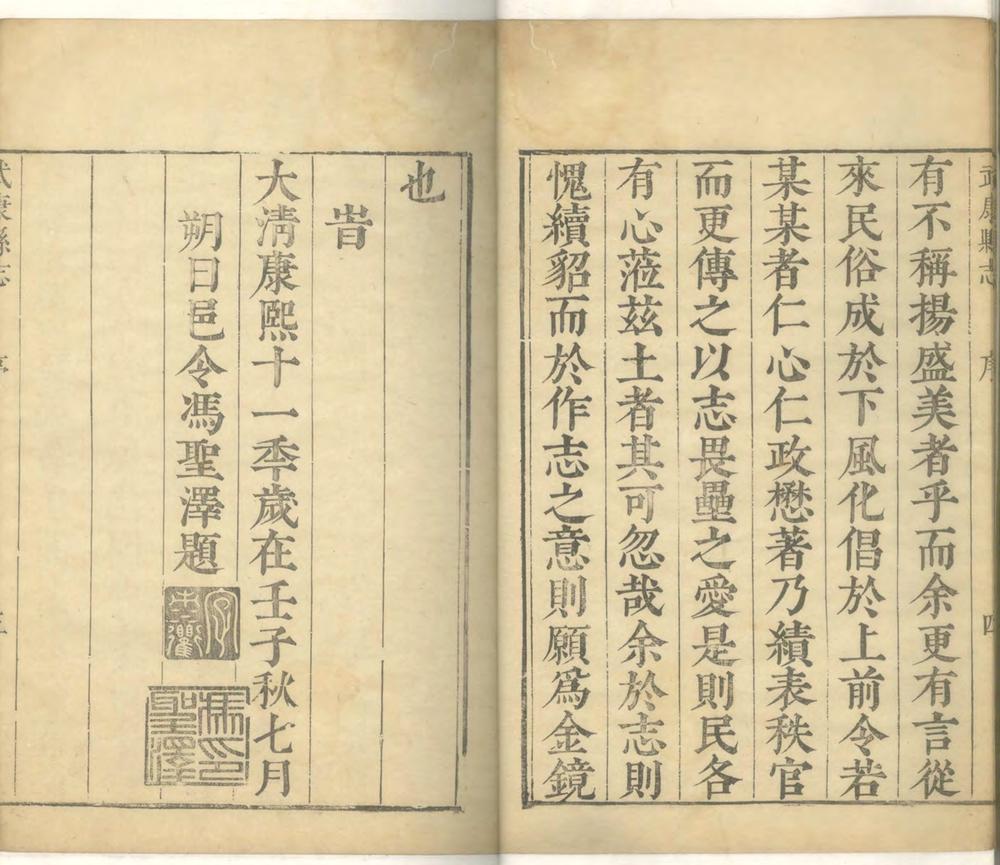 武康縣志 序 四
有不稱揚盛美者乎而余更有言從
來民俗成於下風化倡於上前令若
某某者仁心仁政懋著乃績表秩官
而更傳之以志畏壘之愛是則民各
有心蒞茲土者其可忽哉余於志則
愧續貂而於作志之意則願爲金鏡
也
旹
大淸康熙十一秊歲在壬子秋七月
朔日邑令馮聖澤題
馮印聖澤
武康縣志 序